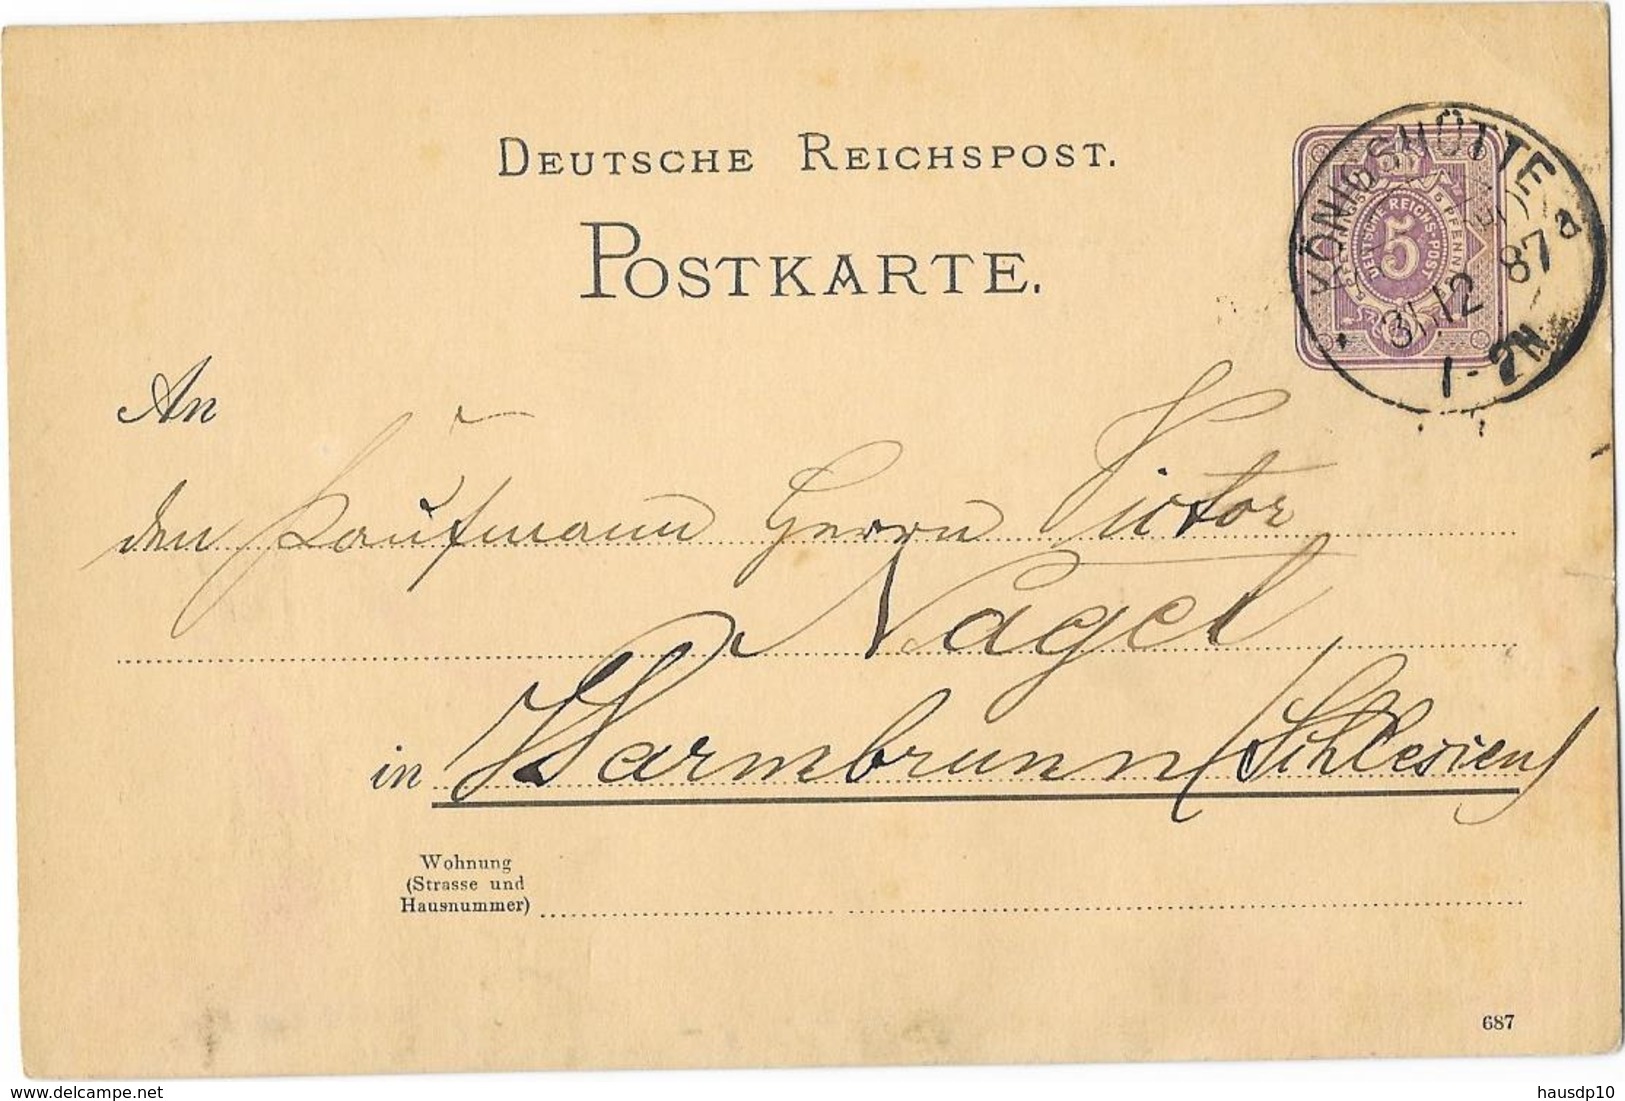 DEUTSCHE REICHSPOST.
POSTKARTE.
KÖNIGSHÜTTE
a
31.12 87
1-2N.
5 PFENNIG
DEUTSCHE REICHS-POST
5
An
den Kaufmann Herrn Victor
Nagel
in Warmbrunn (Schlesien)
Wohnung
(Strasse und
Hausnummer)
687
www.delcampe.net
hausdp10